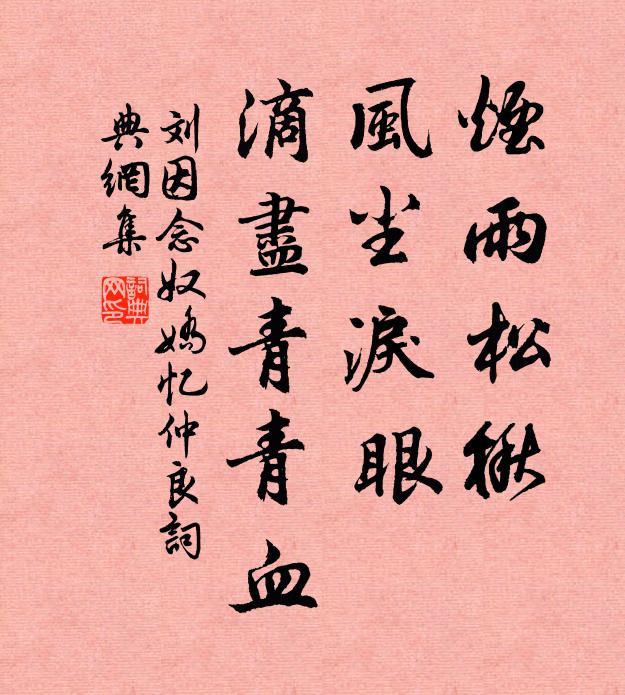 煙雨松楸
風尘淚眼
滴盡青青血
刘因念奴嬌忆仲良詞
典網集
詞典網印